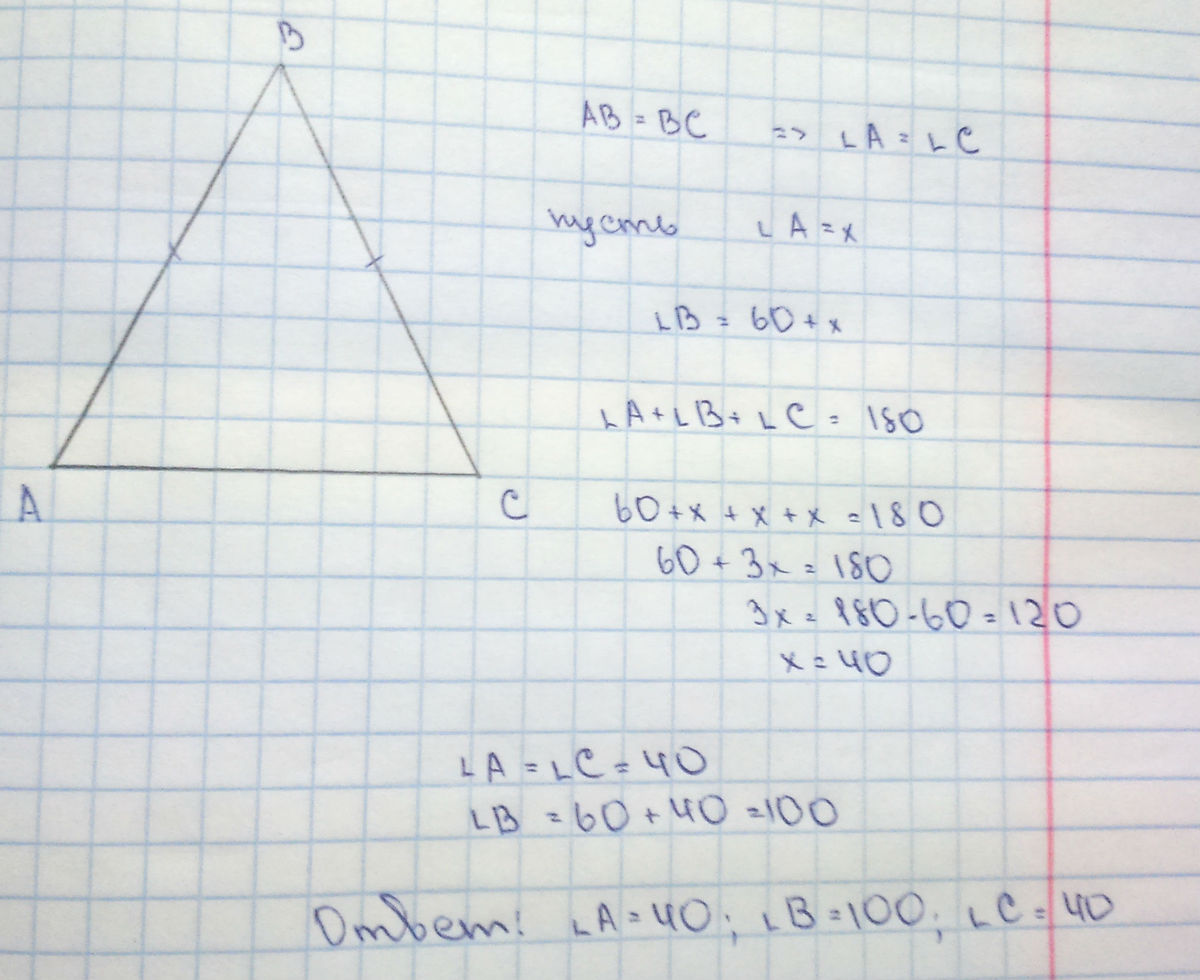 B
AB = BC => ∟A = ∟C
пусть ∟A = x
∟B = 60 + x
∟A + ∟B + ∟C = 180
A
C
60 + x + x + x = 180
60 + 3x = 180
3x = 180 - 60 = 120
x = 40
∟A = ∟C = 40
∟B = 60 + 40 = 100
Ответ: ∟A = 40; ∟B = 100; ∟C = 40